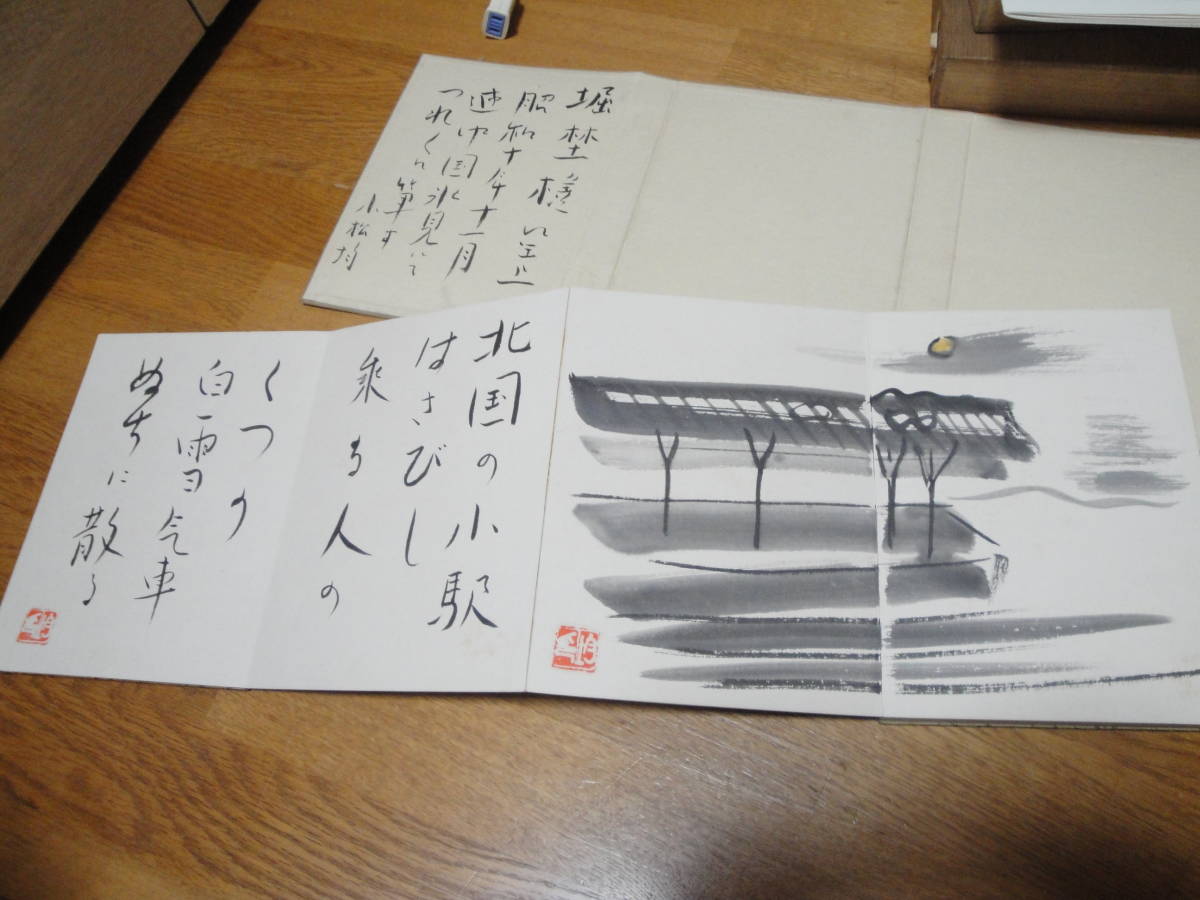 堀埜様に呈上
昭和十年十一月
越中国氷見にて
つれ〱に筆す
小松均
北国の小駅
はさびし
乗る人の
くつの
白雪気車
ぬちに散る